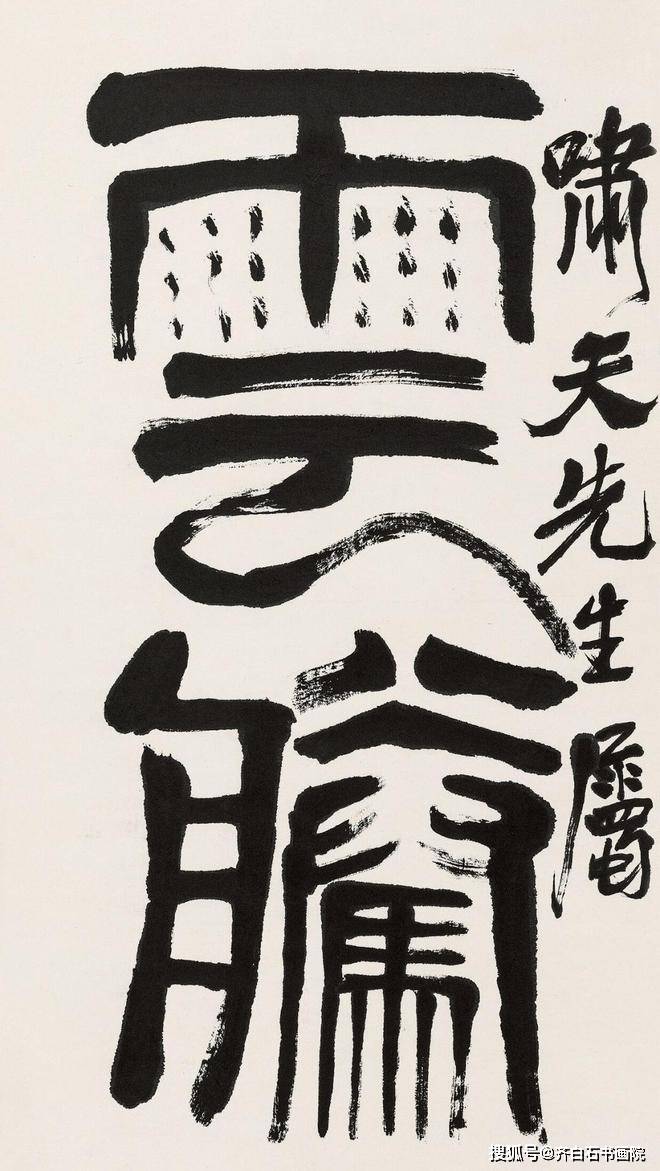 啸天先生屬
雲
騰
搜狐号@齐白石书画院